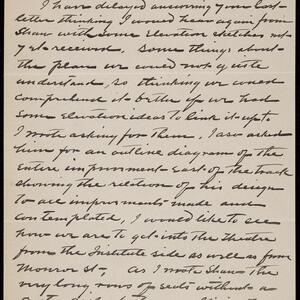 I have delayed answering your last
letter thinking I would hear again from
Shaw with some Elevation sketches not
yet received. Some things about
the plan we could not quite
understand, so thinking we could
comprehend it better if we had
some Elevation ideas to link it up to.
I wrote asking for them, I also asked
him for an outline diagram of the
entire improvment East of the track
showing the relation of his design
to all improvments made and
contemplated, I would like to see
how we are to get into the Theatre
from the Institute side as well as from
Monroe St. As I wrote Shaw the
very long rows of seats without a